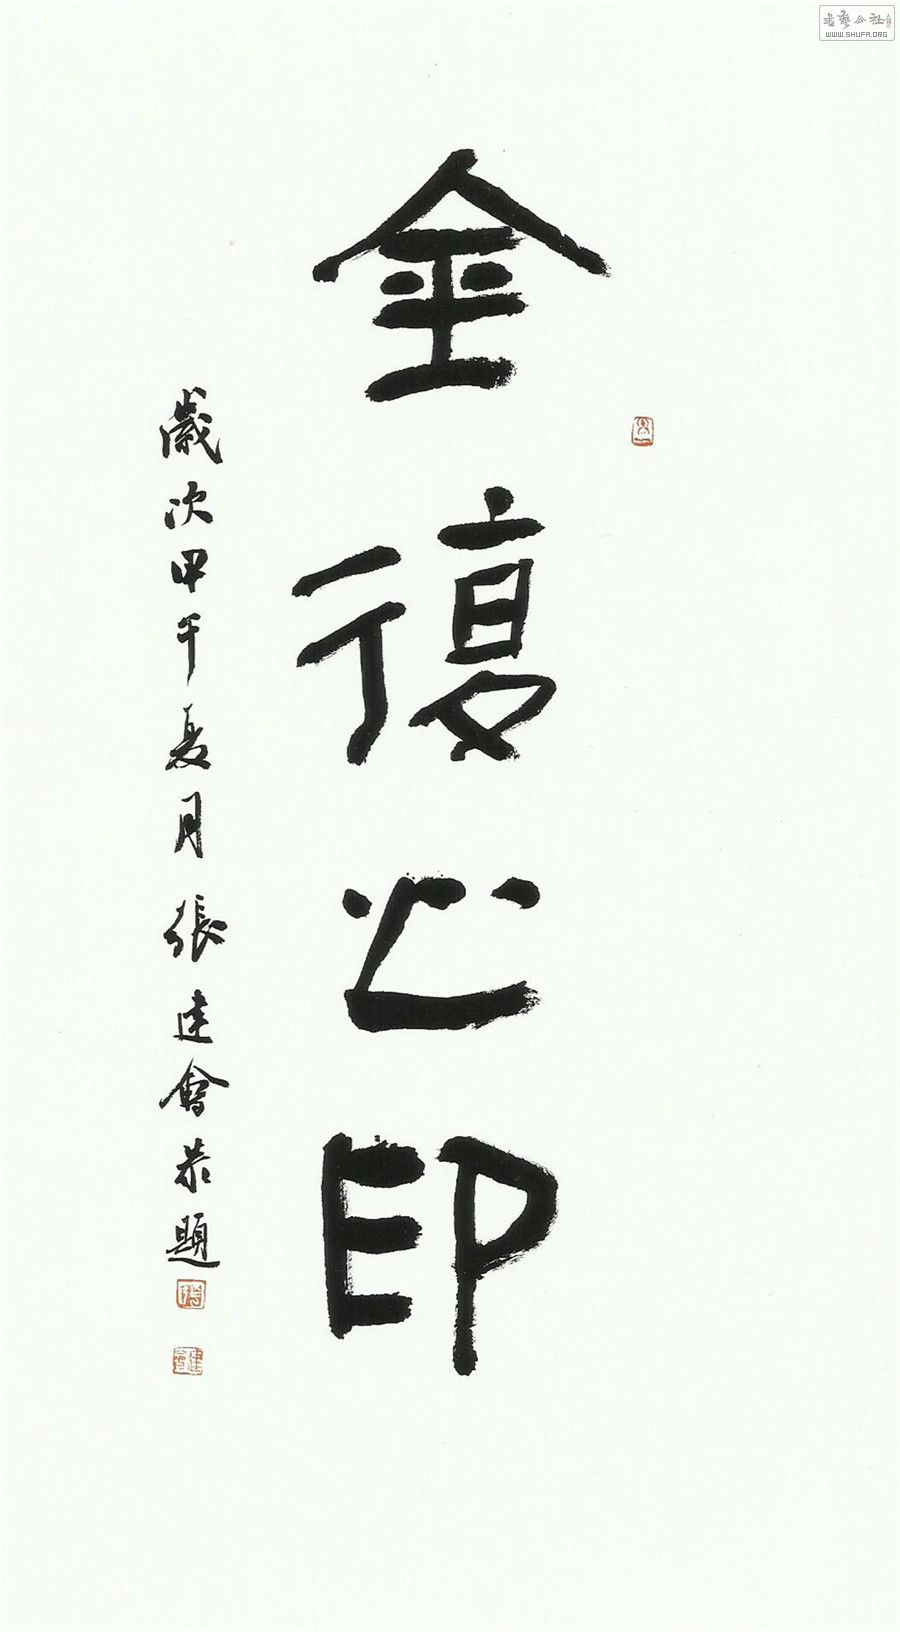 金復之印
歲次甲午夏月張建會恭題
書藝公社
WWW.SHUFA.ORG